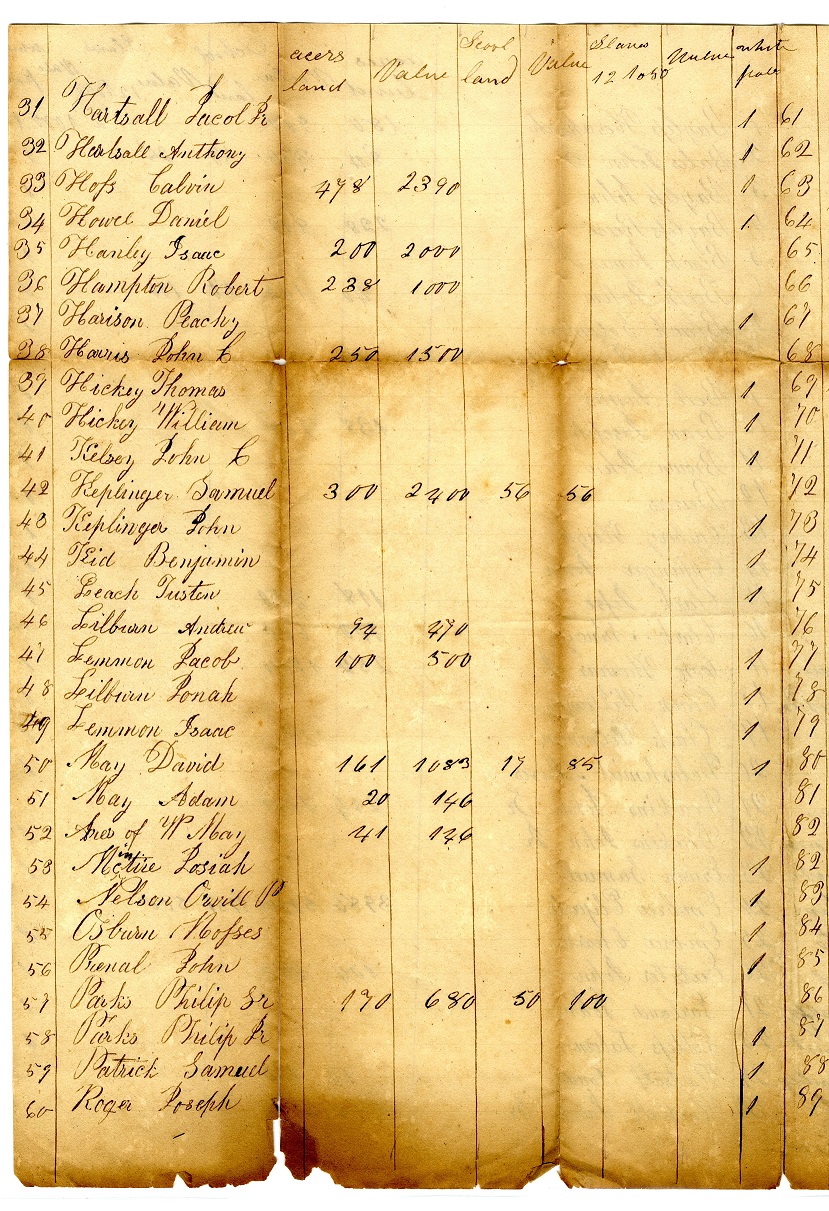 acers land Value Scool land Value Slaves 12 to 50 Value white pole
31 Hartsall Jacol Jr 1 61
32 Hartsall Anthony 1 62
33 Hofs Calvin 478 2390 1 63
34 Howel Daniel 1 64
35 Hanley Isaac 200 2000 65
36 Hampton Robert 238 1000 66
37 Harison Peachy 1 67
38 Harris John C 250 1500 68
39 Hickey Thomas 1 69
40 Hickey William 1 70
41 Kelsey John C 1 71
42 Keplinger Samuel 300 2400 56 56 72
43 Keplinger John 1 73
44 Kid Benjamin 1 74
45 Leach Tusten 1 75
46 Lilburn Andrew 94 470 76
47 Lemmon Jacob 100 500 1 77
48 Lilburn Jonah 1 78
49 Lemmon Isaac 1 79
50 May David 161 1083 17 85 1 80
51 May Adam 20 146 81
52 of W May 41 146 82
53 McIntire Josiah 1 82
54 Nelson Orvill P 1 83
55 Osburn Mofses 1 84
56 John 1 85
57 Parks Philip Sr 170 680 50 100 86
58 Parks Philip Jr 1 87
59 Patrick Samuel 1 88
60 Roger Joseph 1 89